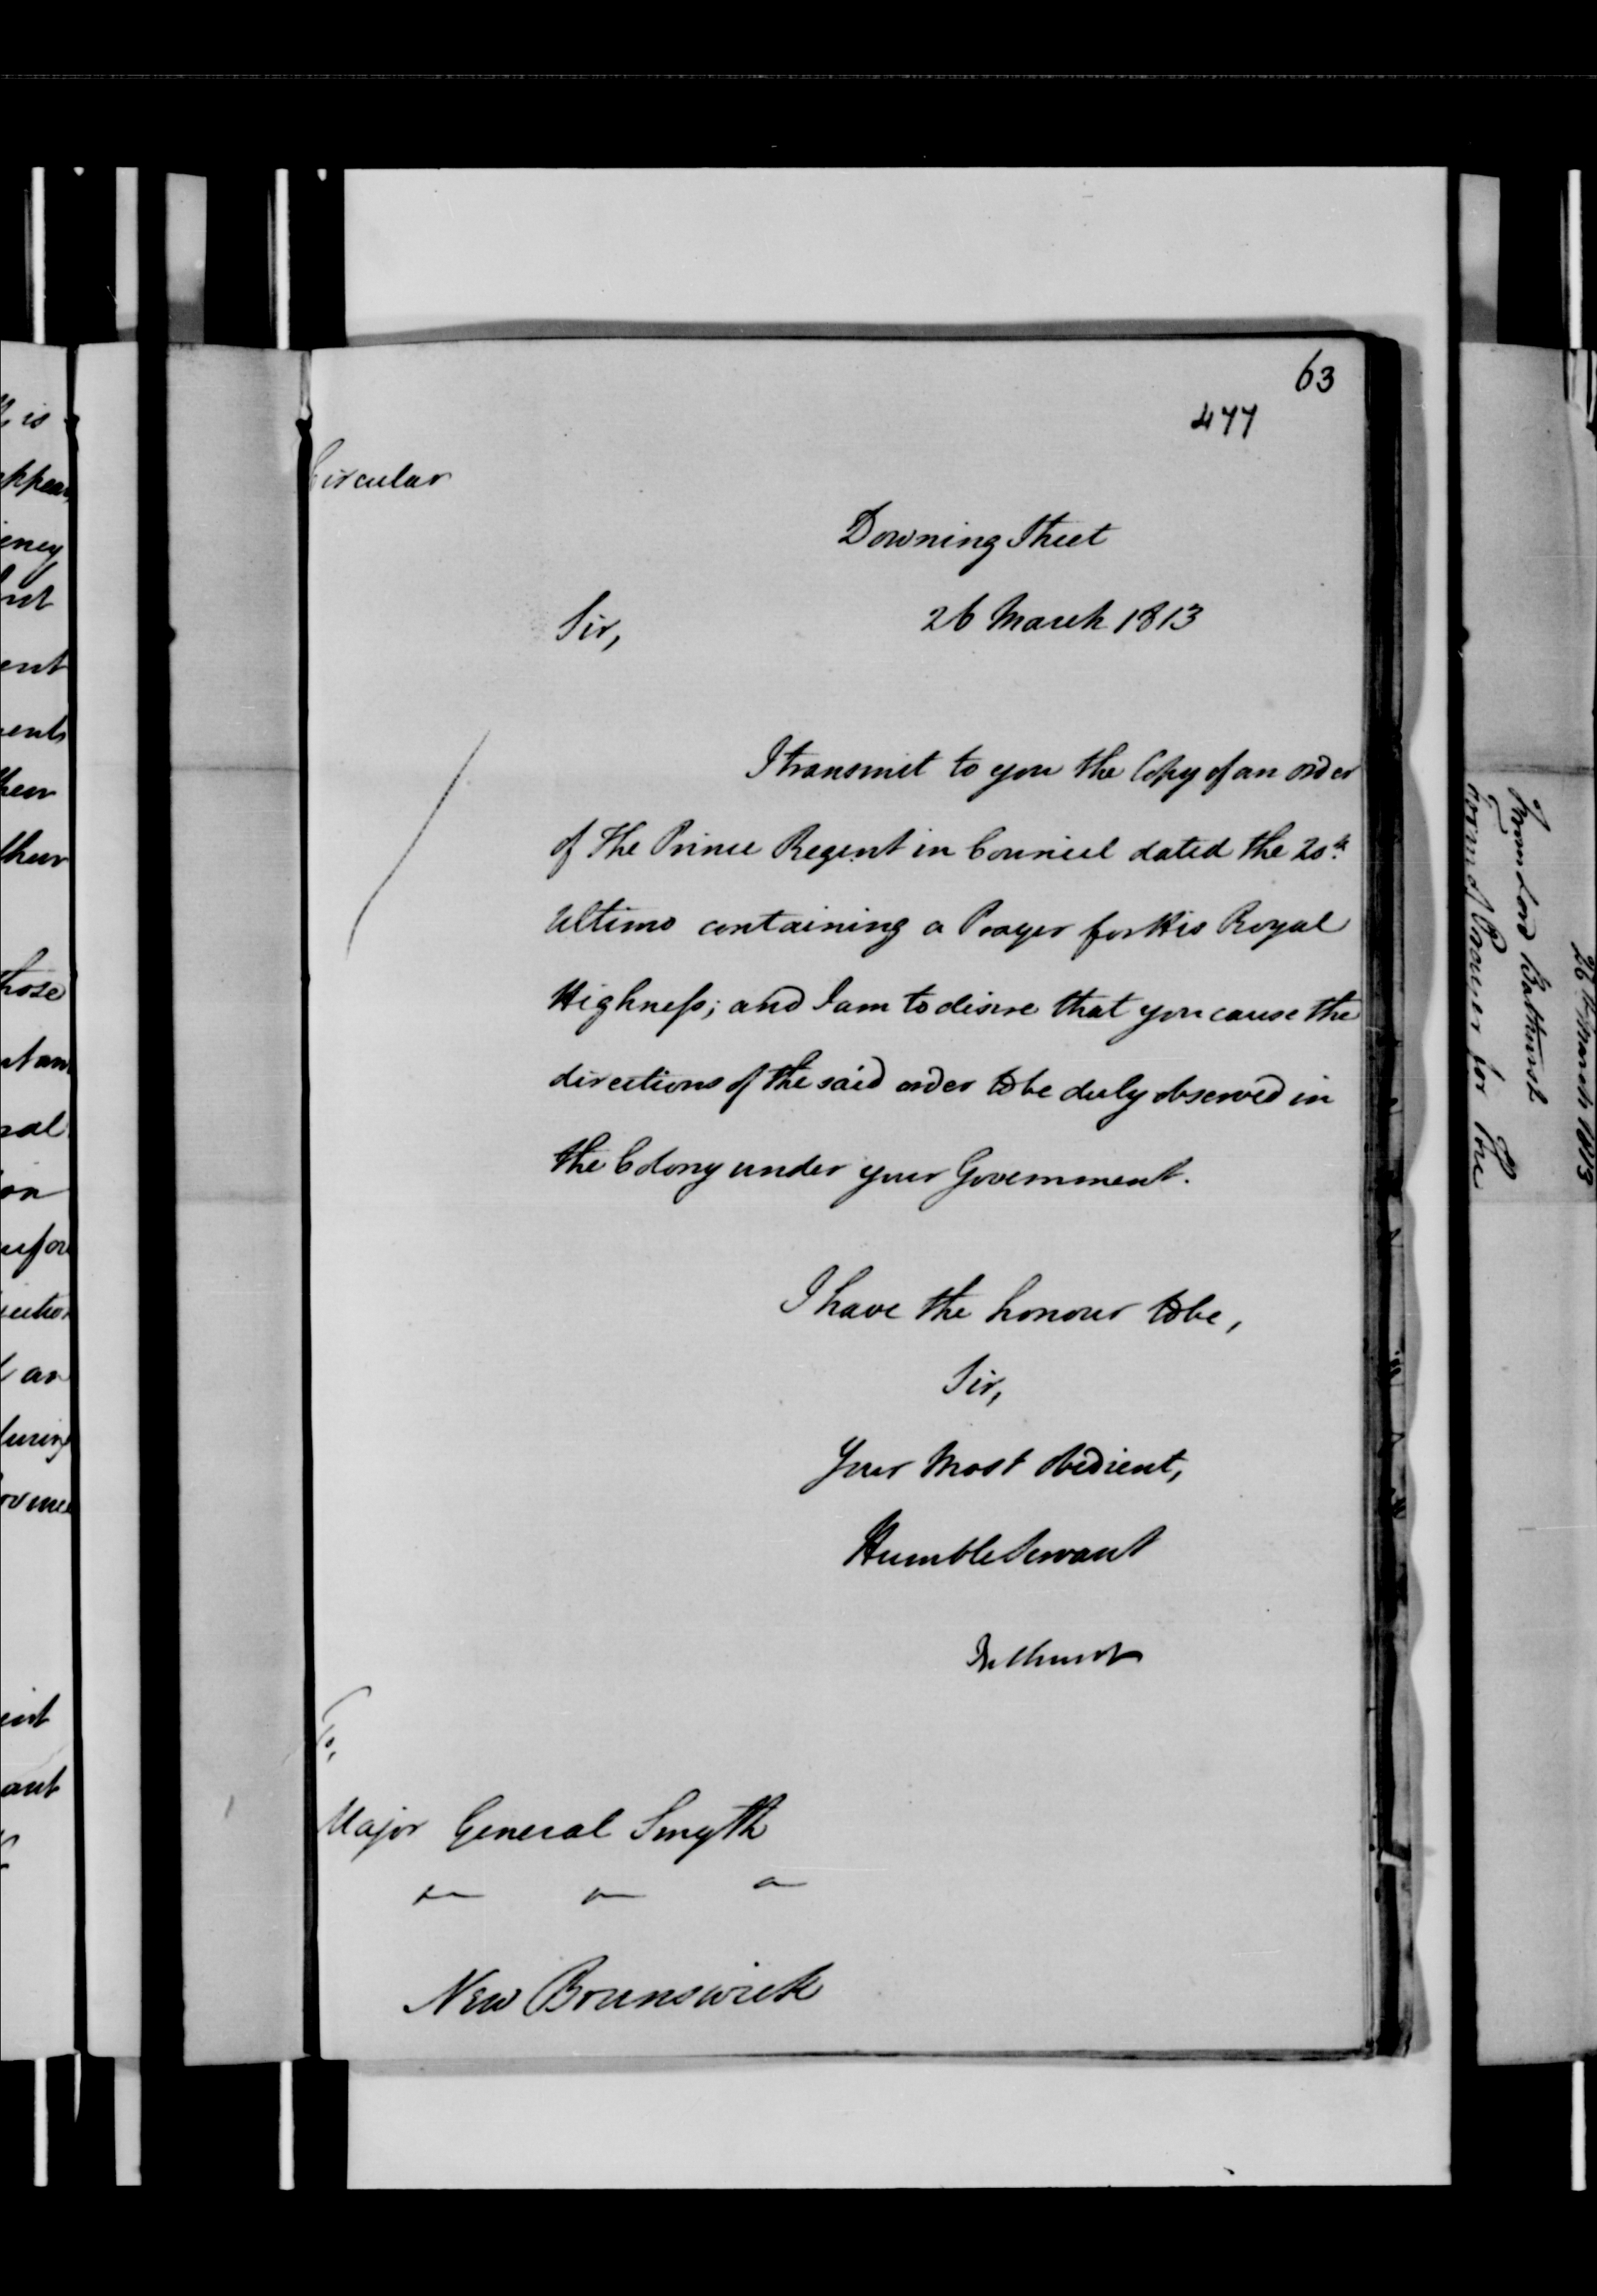 63
477
Circular
Downing Street
Sir, 26 March 1813
I transmit to you the Copy of an order
of The Prince Regent in Council dated the 20th
Ultimo containing a Prayer for His Royal
Highneſs; and I am to desire that you cause the
directions of the said order to be duly observed in
the Colony under your Government.
I have the honour to be,
Sir,
Your most obedient,
Humble Servant
Bathurst
To,
Major General Smyth
New Brunswick
26th March 1813
From Lord Bathurst
Form of Prayer for the
is
appear
ent
ents
their
those
nal
on
an
during
ant